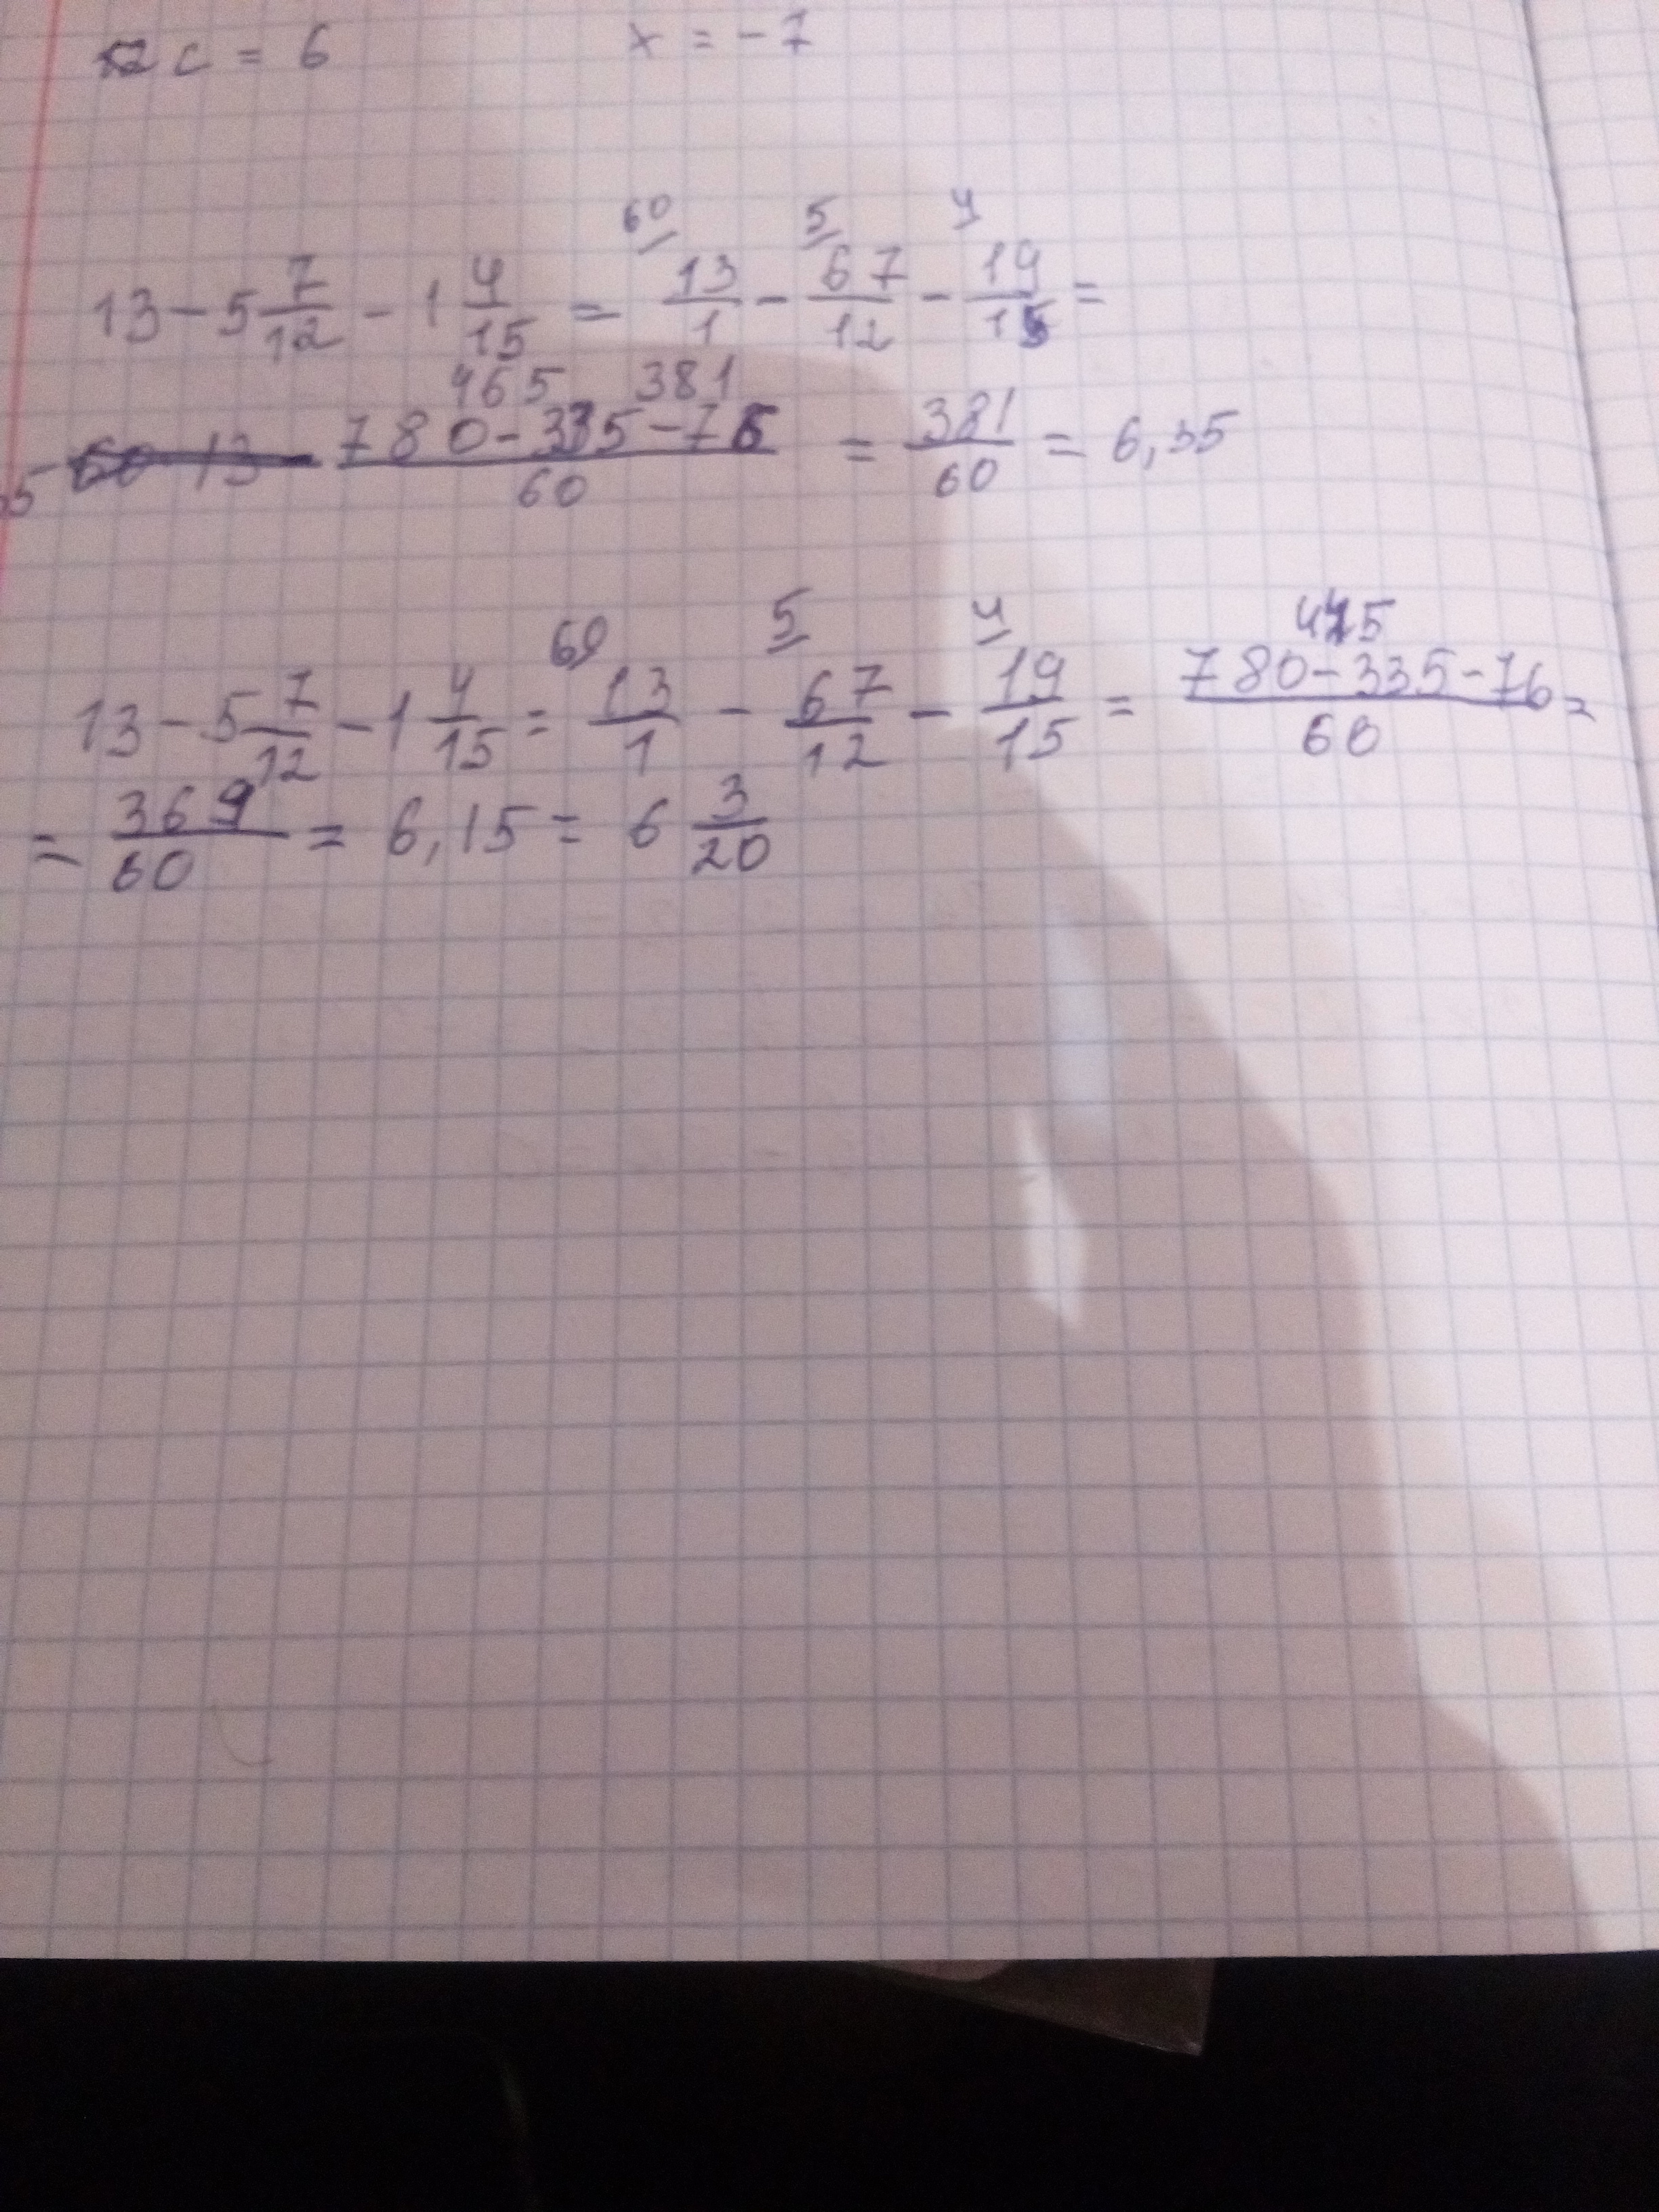 2c = 6 x = -7
60 5 4
13 - 5 7/12 - 1 4/15 = 13/1 - 67/12 - 19/15 =
465 381
780 - 335 - 76/60 = 381/60 = 6,35
60 5 4 445
13 - 5 7/12 - 1 4/15 = 13/1 - 67/12 - 19/15 = 780 - 335 - 76/60 =
= 369/60 = 6,15 = 6 3/20